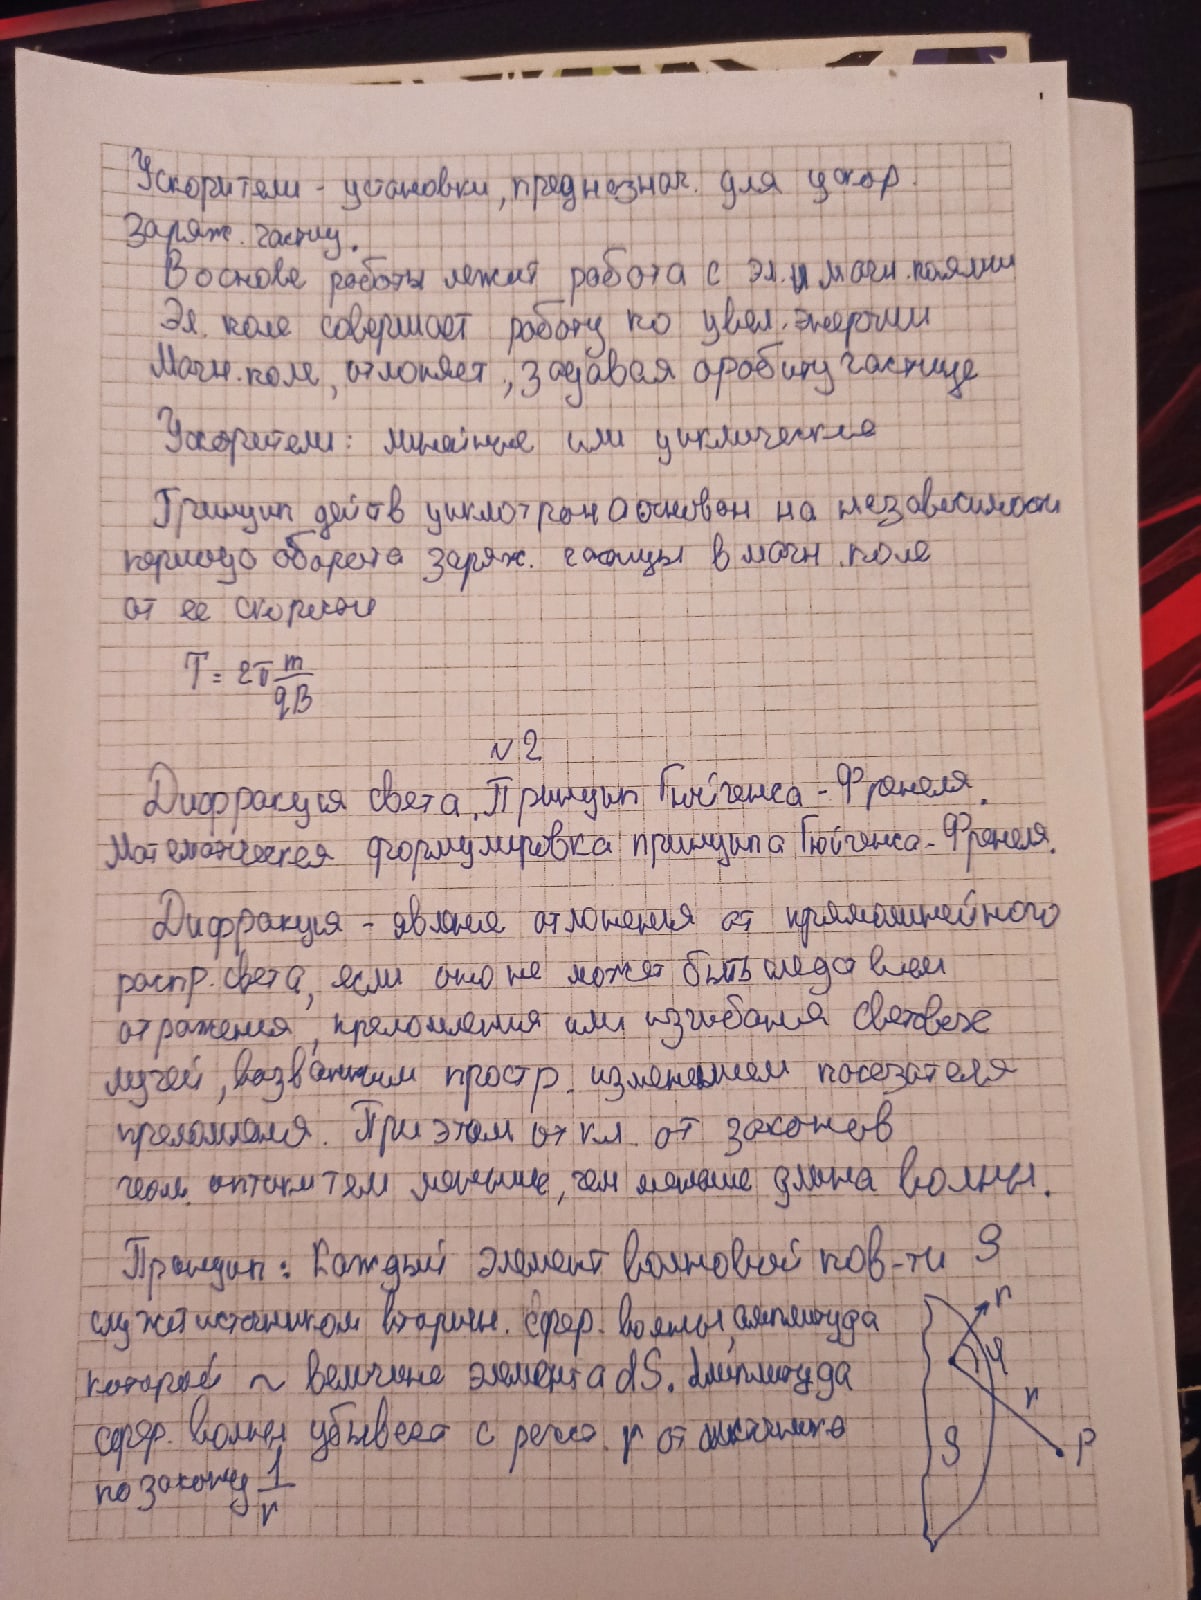 Ускорители - установки, предназнач. для ускор.
заряж. частиц.
В основе работы лежит работа с эл. и магн. полями
Эл. поле совершает работу по увел. энергии
Магн. поле, отклоняет, задавая орбиту частице
Ускорители: линейные или циклические
Принцип действ циклотрона основан на независимости
периода оборота заряж. частицы в магн. поле
от её скорости
T = 2π m/qB
№2
Дифракция света. Принцип Гюйгенса - Френеля.
Математическая формулировка принципа Гюйгенса - Френеля.
Дифракция - явление отклонения от прямолинейного
распр. света, если оно не может быть следствием
отражения, преломления или изгибания световых
лучей, вызванным простр. изменением показателя
преломления. При этом откл. от законов
геом. оптики тем меньше, чем меньше длина волны.
Принцип: Каждый элемент волновой пов-ти S
служит источником вторичн. сфер. волны, амплитуда
которой ~ величине элемента dS. Амплитуда
сфер. волны убывает с расст. r от источника
по закону 1/r
n
φ
r
S
P